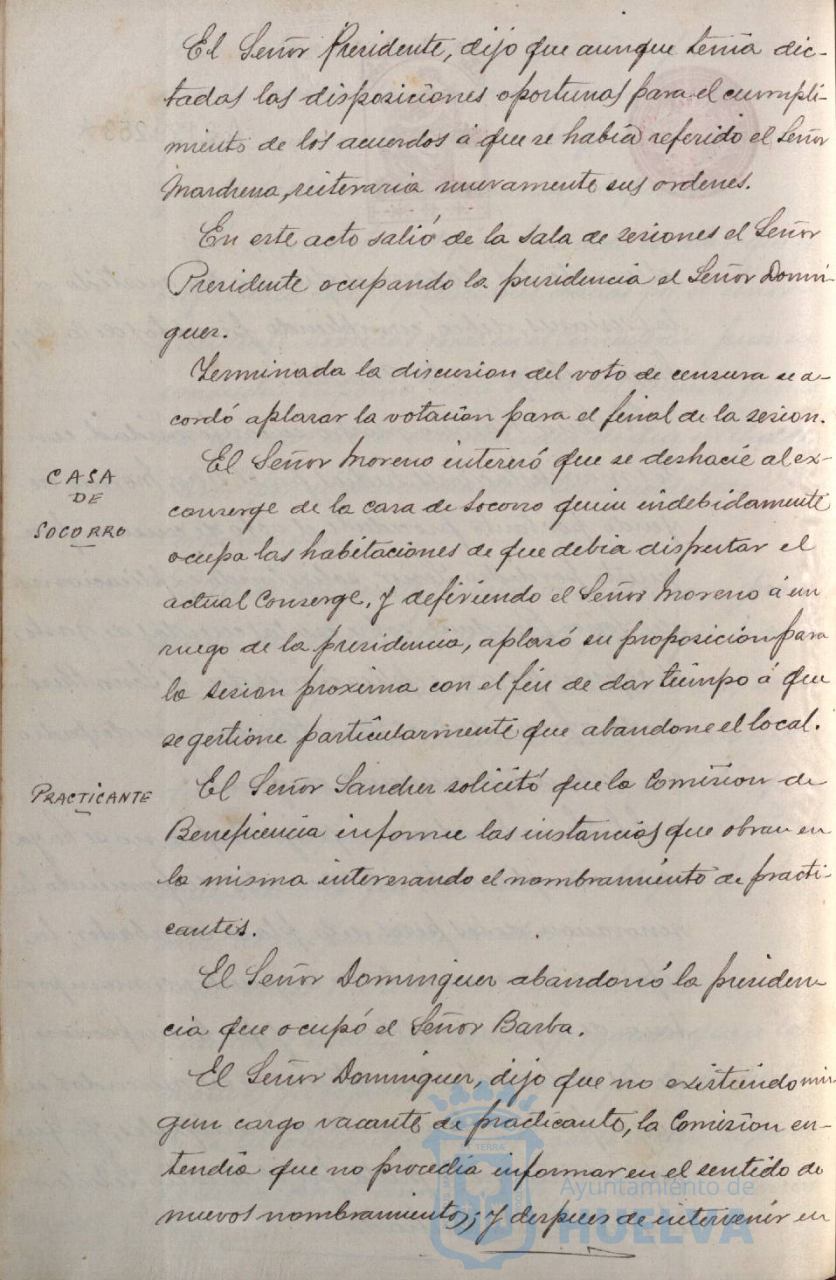 El Señor Presidente, dijo que aunque tenia dic-
tadas las disposiciones oportunas para el cumpli-
miento de los acuerdos á que se había referido el Señor
Marchena, reiteraria nuevamente sus ordenes.
En este acto salió de la sala de sesiones el Señor
Presidente ocupando la presidencia el Señor Domin-
guez.
Terminada la discusion del voto de censura se a-
cordó aplazar la votacion para el final de la sesion.
CASA
DE
SOCORRO
El Señor Moreno interesó que se deshacie al ex-
conserge de la casa de Socorro quien indebidamente
ocupa las habitaciones de que debia disfrutar el
actual Conserge, y defiriendo el Señor Moreno á un
ruego de la presidencia, aplazó su proposición para
la sesion proxima con el fin de dar tiempo á que
se gestione particularmente que abandone el local.
PRACTICANTE
El Señor Sanchez solicitó que la Comision de
Beneficencia informe las instancias que obran en
la misma interesando el nombramiento de practi-
cantes.
El Señor Dominguez abandonó la presiden
cia que ocupó el Señor Barba.
El Señor Dominguez, dijo que no existiendo nin-
gun cargo vacante de practicante, la Comision en-
tendia que no procedia informar en el sentido de
nuevos nombramientos; y despues de intervenir en
Ayuntamiento de
HUELVA